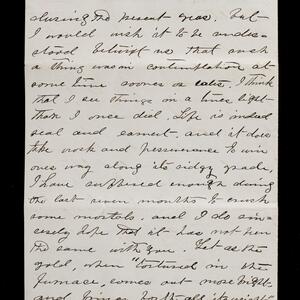 during the present year. but
I would wish it to be under-
stood betwixt us that such
a thing was in contemplation at
some time sooner or later. I think
that I see things in a truer light
than I once did. Life is indeed
real and earnest. and it does
take work and perseverance to win
ones way along its ridgy grade,
I have suffered enough during
the last seven months to crush
some mortals. and I do sin-
cerely hope that it has not been
the same with you. Yet as the
gold, when "tortured in the
furnace, comes out more bright
and brings forth all its weight"